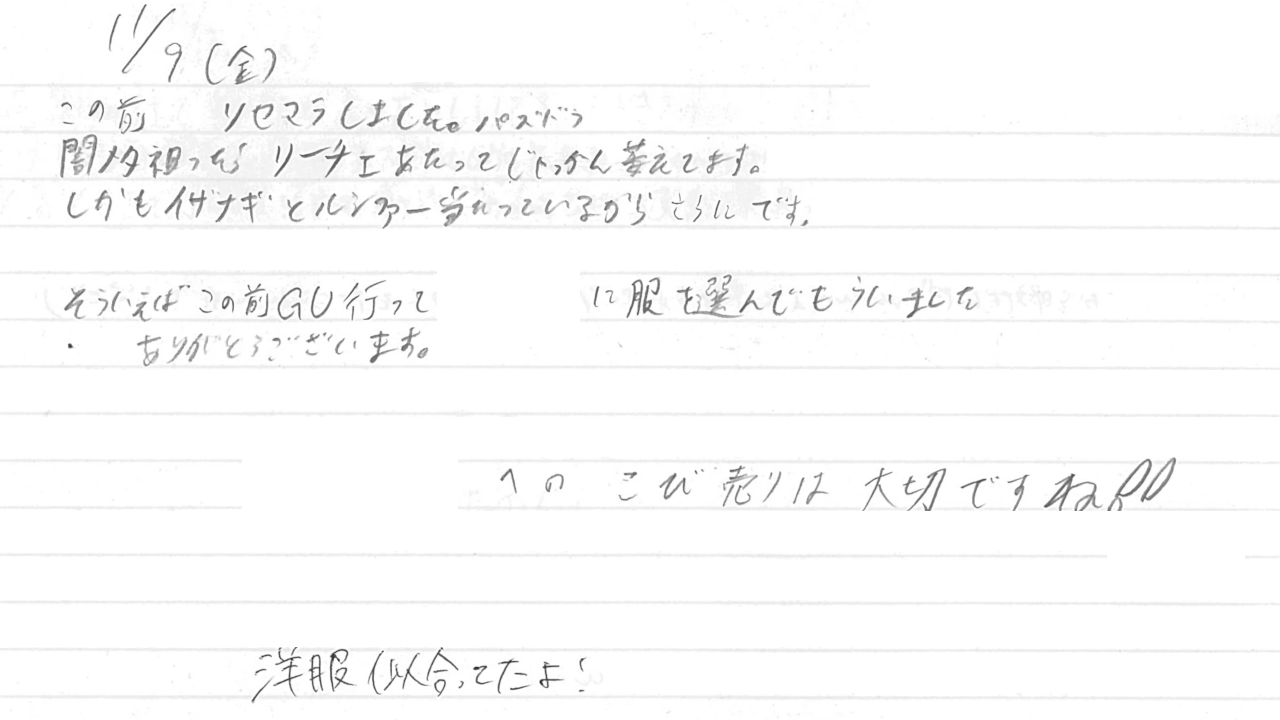 11/9(金)
この前 リセマラしました。パズドラ
闇メタ狙ったら リーチェあたってじゃっかん萎えてます。
しかもイザナギとルシファー当たっているからさらにです。
そういえばこの前GU行って に服を選んでもらいました
・ ありがとうございます。
への こび売りは 大切ですね!!
洋服似合ってたよ!